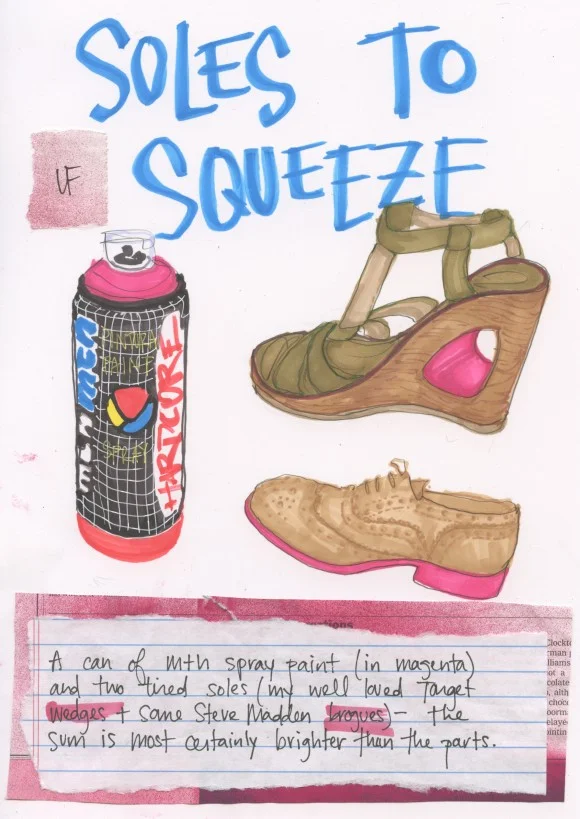 SOLES TO
SQUEEZE
LF
mtn
HARDCORE
SPRAY
A can of mtn spray paint (in magenta)
and two tired soles (my well loved Target
wedges + some Steve Madden brogues) - the
sum is most certainly brighter than the parts.